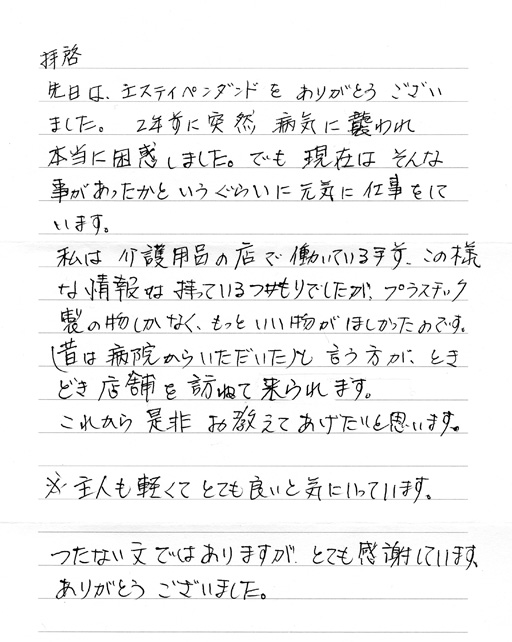 拝啓
先日は、エスティペンダンドを ありがとう ござい
ました。 2年前に突然 病気に襲われ
本当に困惑しました。でも 現在は そんな
事があったかと いうぐらいに 元気に 仕事をして
います。
私は 介護用品の店で 働いている手前、この様
な情報は 持っているつもりでしたが、プラスチック
製の物しかなく、もっといい物が ほしかったのです。
(昔は 病院からいただいた)と 言う方が、とき
どき 店舗を 訪ねて 来られます。
これから 是非 お教えて あげたいと思います。
※ 主人も 軽くて とても良いと 気にいっています。
つたない文では ありますが、とても感謝しています、
ありがとう ございました。